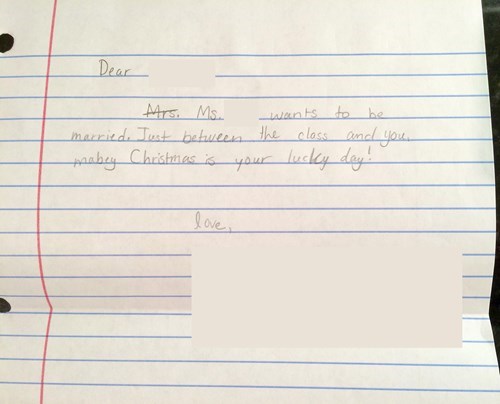 Dear
Mrs. Ms. wants to be
married. Just between the class and you,
mabey Christmas is your lucky day!
love,